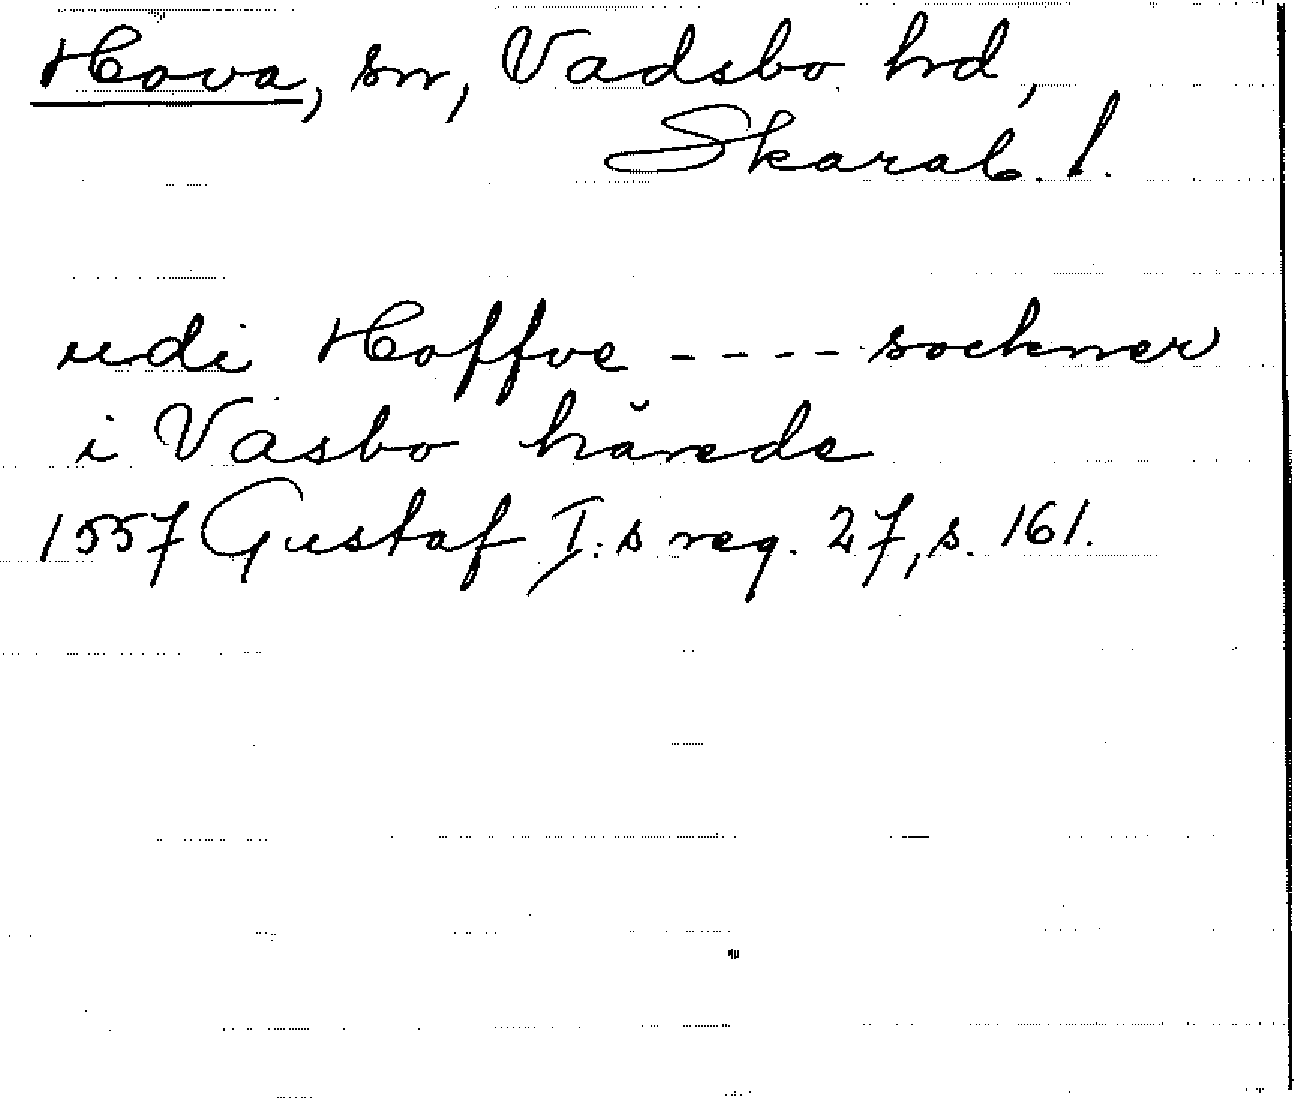 Hova, sn, Vadsbo hrd,
Skarab. l.
udi Hoffve ---- sockner
i Vasbo hărede
1557 Gustaf I:s reg. 27, s. 161.